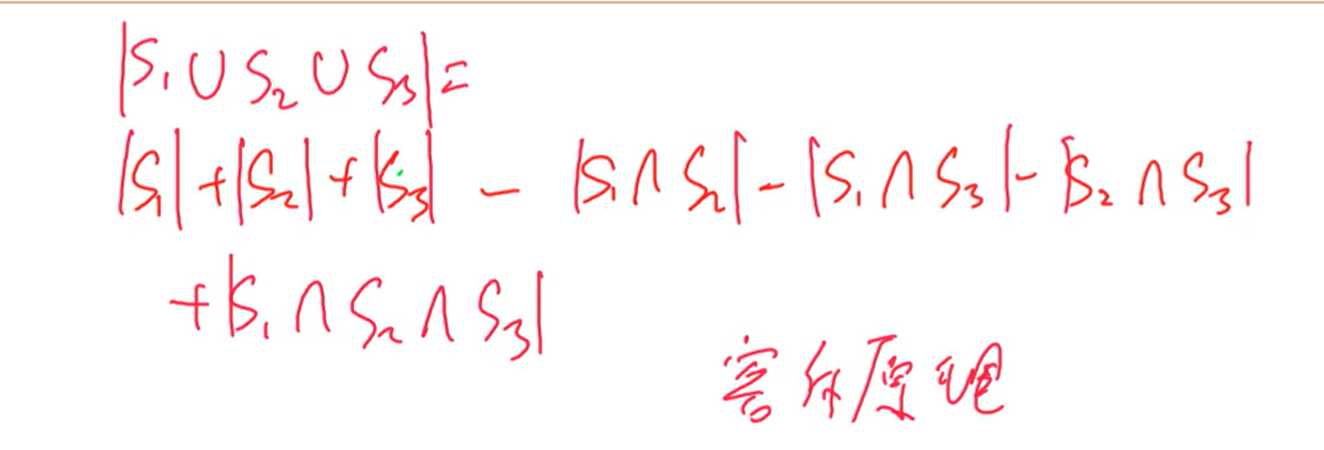 |S₁ ∪ S₂ ∪ S₃| =
|S₁| + |S₂| + |S₃| - |S₁ ∩ S₂| - |S₁ ∩ S₃| - |S₂ ∩ S₃|
+ |S₁ ∩ S₂ ∩ S₃|
容斥原理